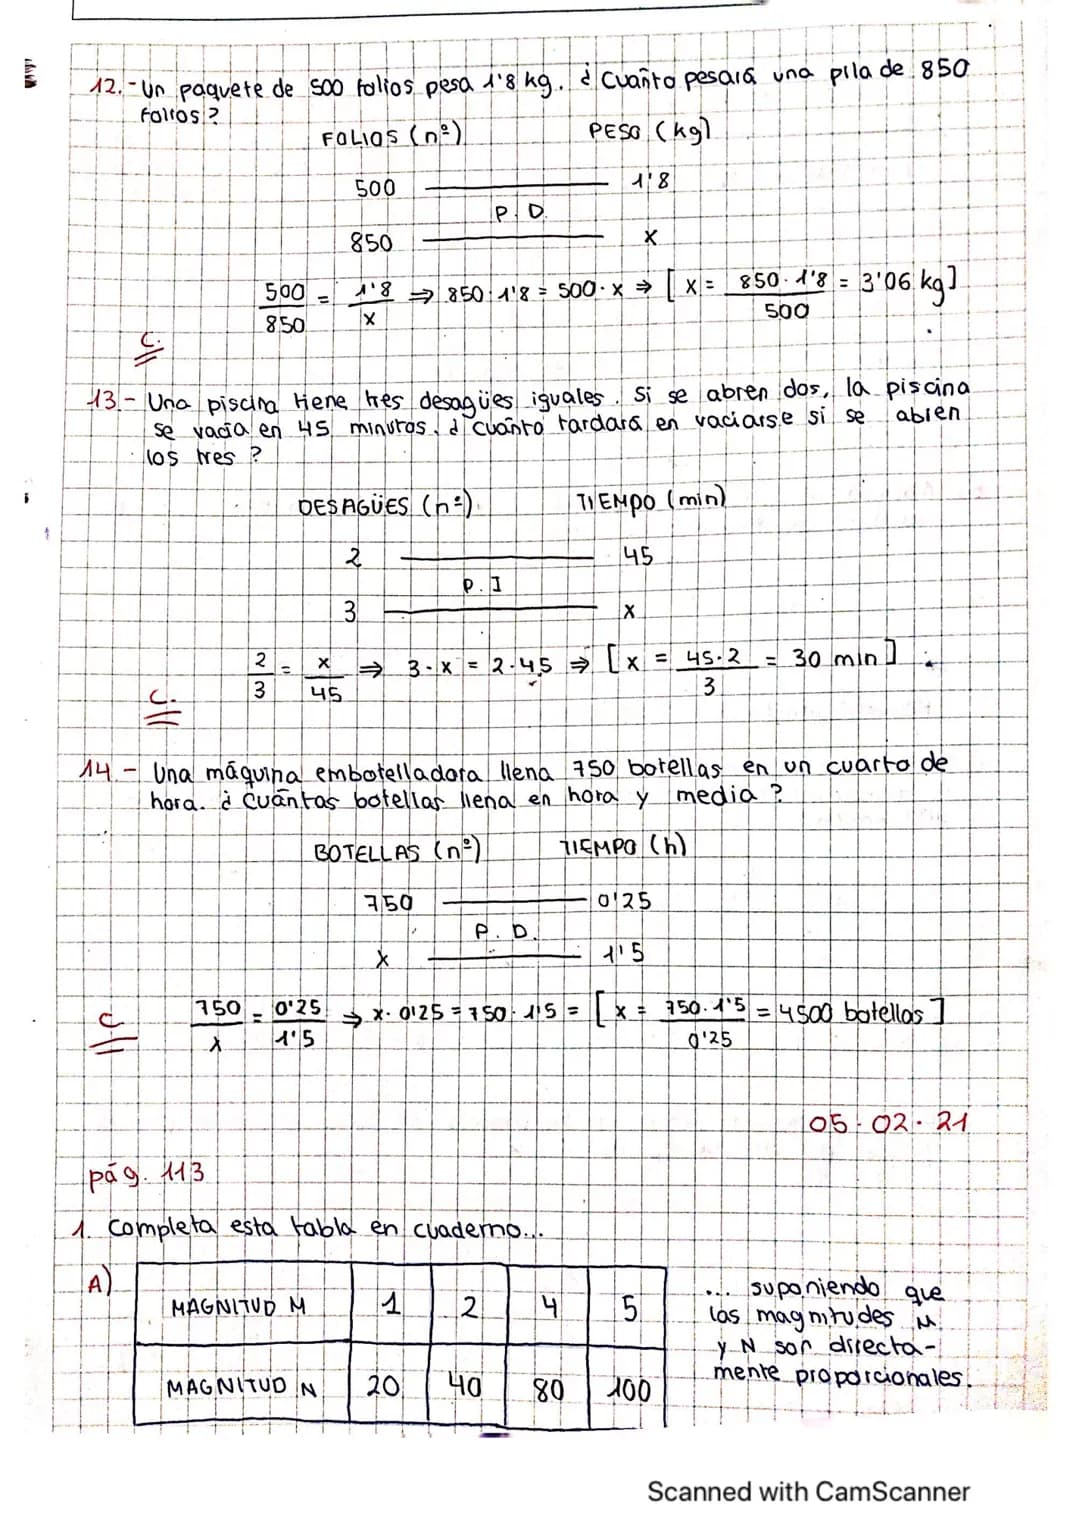 12.- Un paquete de 500 folios pesa 1'8 kg. ¿Cuánto pesará una pila de 850
folios?
FOLIOS (nº) PESO (kg)
500 1'8
P. D.
850 x
500/850 = 1'8/x ⇒ 850·1'8 = 500·x ⇒ [x = 850·1'8/500 = 3'06 kg]
C.
13.- Una piscina tiene tres desagües iguales. Si se abren dos, la piscina
se vacía en 45 minutos. ¿Cuánto tardará en vaciarse si se abren
los tres?
DESAGÜES (nº) TIEMPO (min)
2 45
P. I
3 x
2/3 = x/45 ⇒ 3·x = 2·45 ⇒ [x = 45·2/3 = 30 min]
C.
14.- Una máquina embotelladora llena 750 botellas en un cuarto de
hora. ¿Cuántas botellas llena en hora y media?
BOTELLAS (nº) TIEMPO (h)
750 0'25
P. D.
x 1'5
C 750/x = 0'25/1'5 ⇒ x·0'25 = 750·1'5 = [x = 750·1'5/0'25 = 4500 botellas]
05-02-21
pág. 113
1. Completa esta tabla en cuaderno...
A)
MAGNITUD M 1 2 4 5
MAGNITUD N 20 40 80 100
... suponiendo que
las magnitudes M
y N son directa-
mente proporcionales.
Scanned with CamScanner